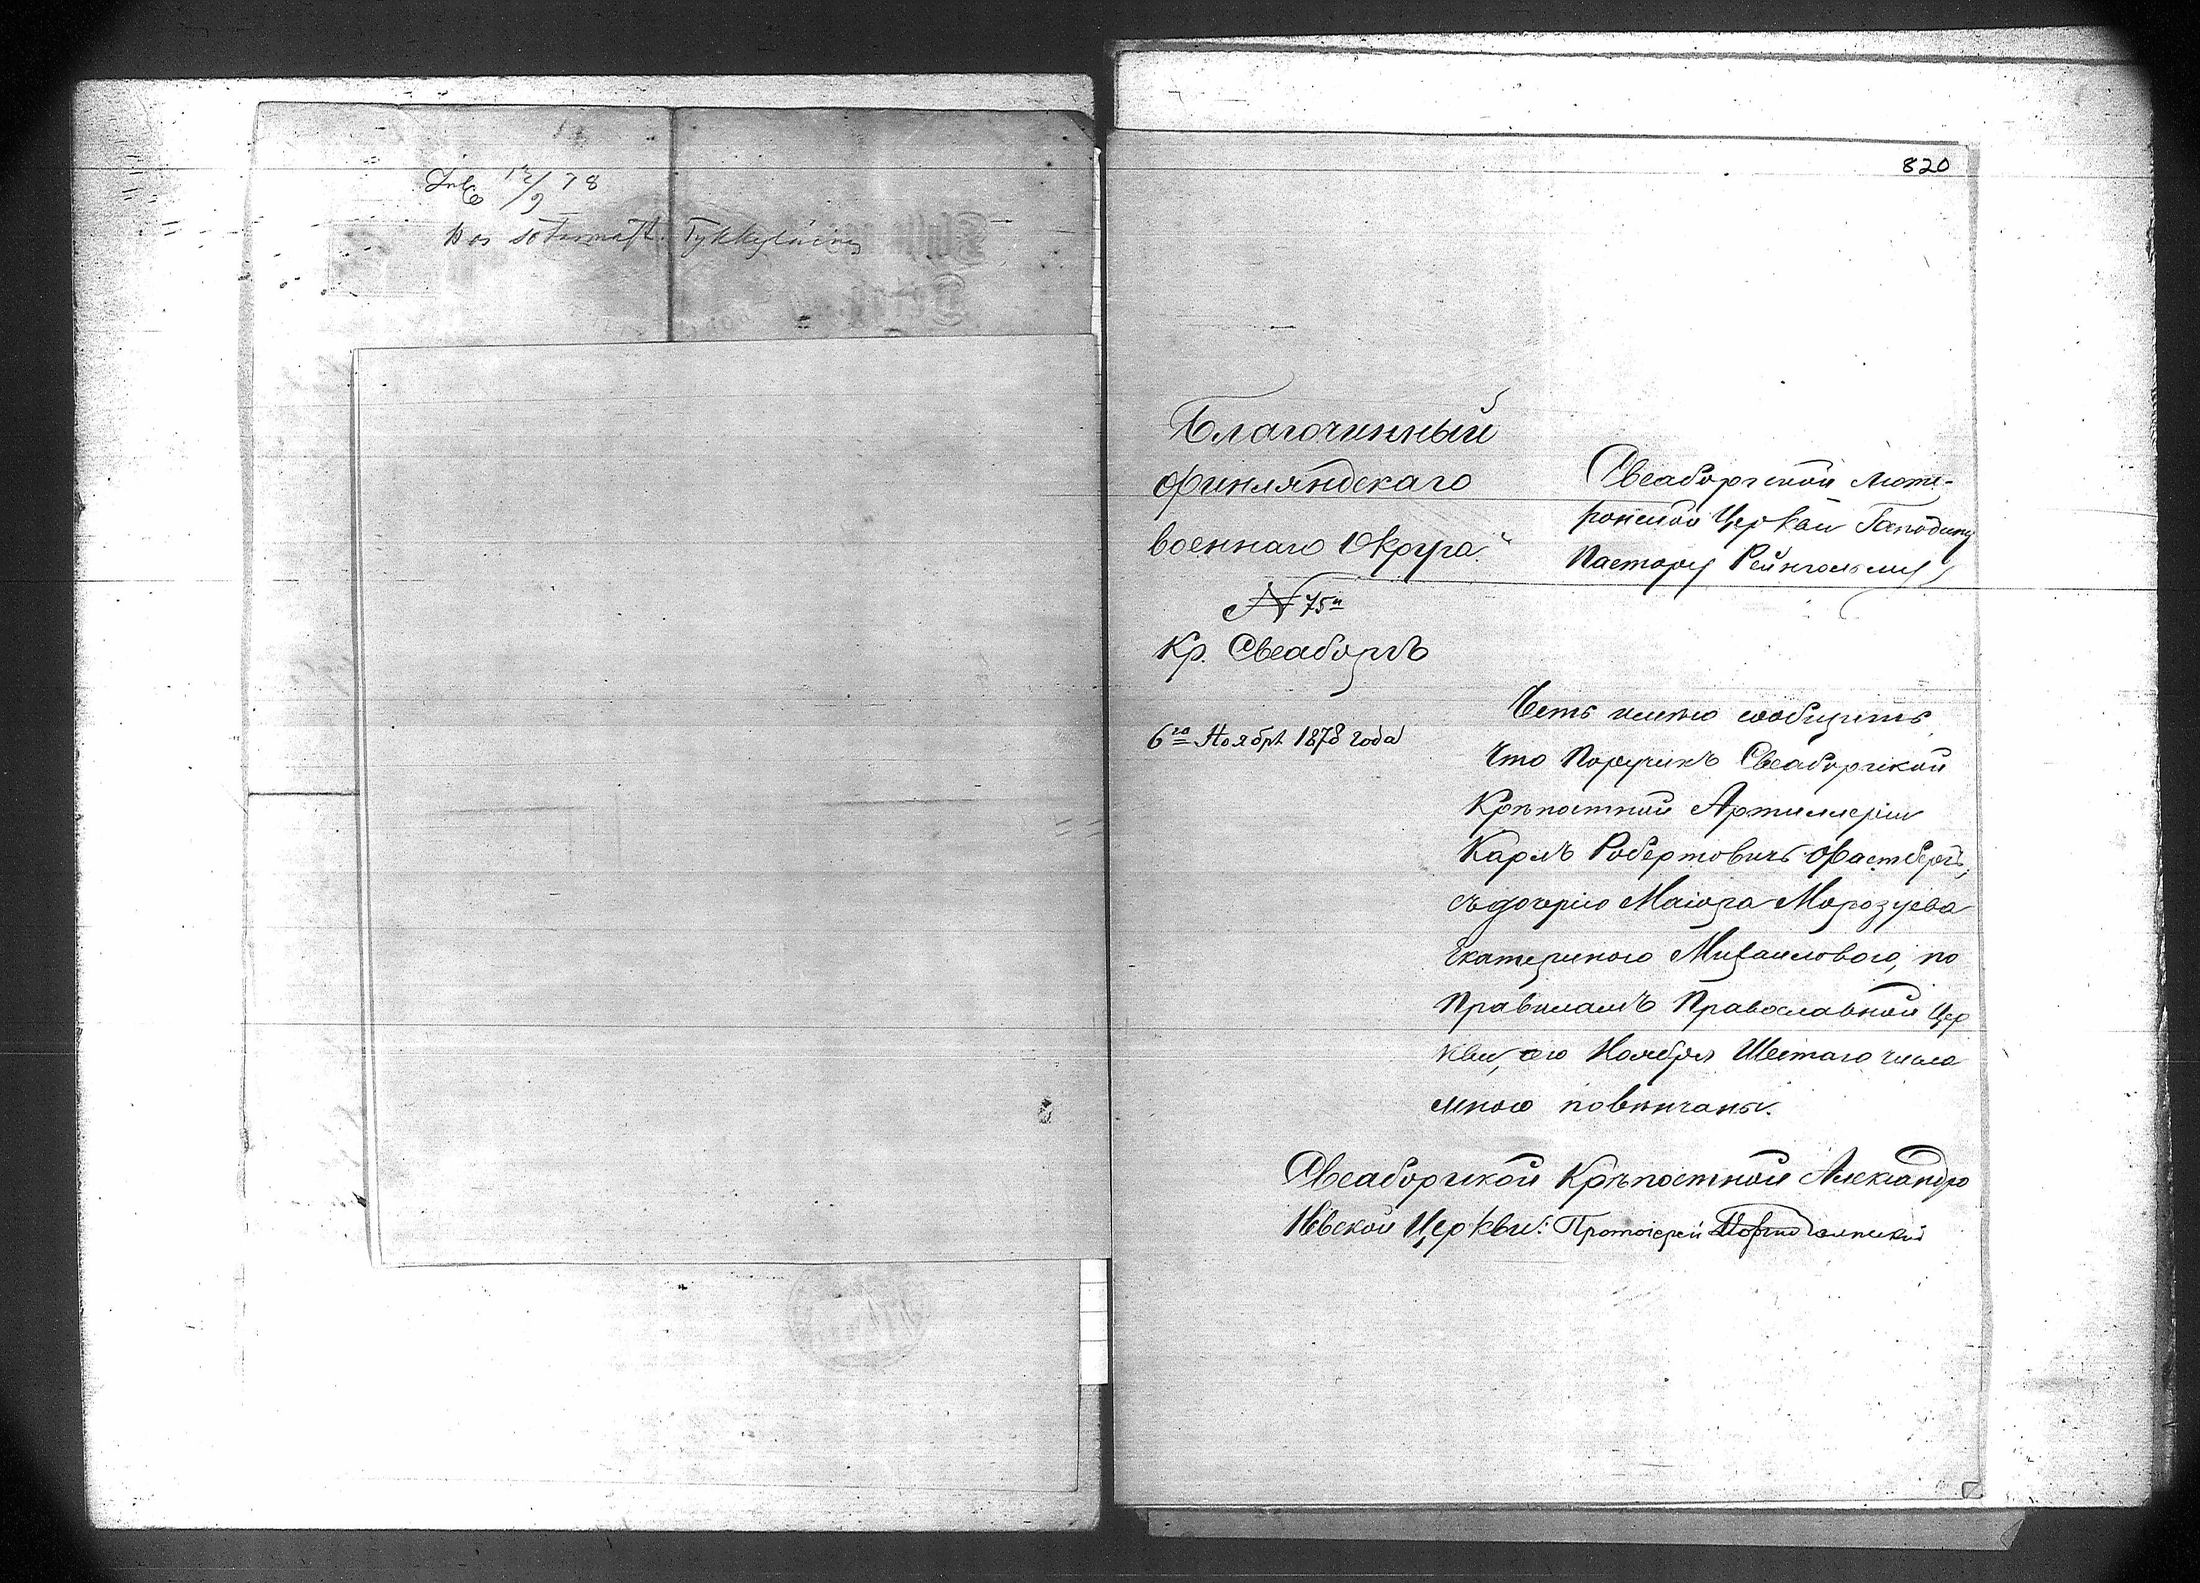 12/9 78
820
Благочинный
Финляндскаго
военнаго Округа.
№ 75й
Кр. Свеаборгъ
6го Ноября 1878 года
Свеаборгской Люте-
ранской Церкви Господину
Пастору
Честь имѣю сообщить
что Поручикъ Свеаборгской
Крѣпостной Артиллеріи
Карлъ Робертовичъ Фастбергъ,
съ дочерію Маіора Морозуева
Екатериною Михаиловою, по
Правиламъ Православной Цер
кви, сего Ноября Шестаго числа
мною повѣнчаны.
Свеаборгской Крѣпостной Александро
Невской Церкви: Протоіерей